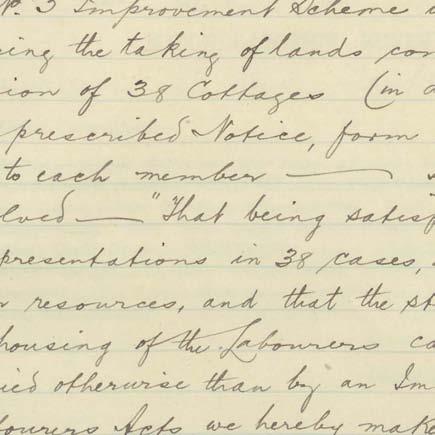 No. 3 Improvement Scheme
ing the taking of lands com
ion of 38 Cottages (in a
prescribed Notice, form
to each member —— 
lved — "That being satisf
presentations in 38 cases,
resources, and that the st
housing of the Labourers ca
ied otherwise than by an Im
bourers Acts we hereby make